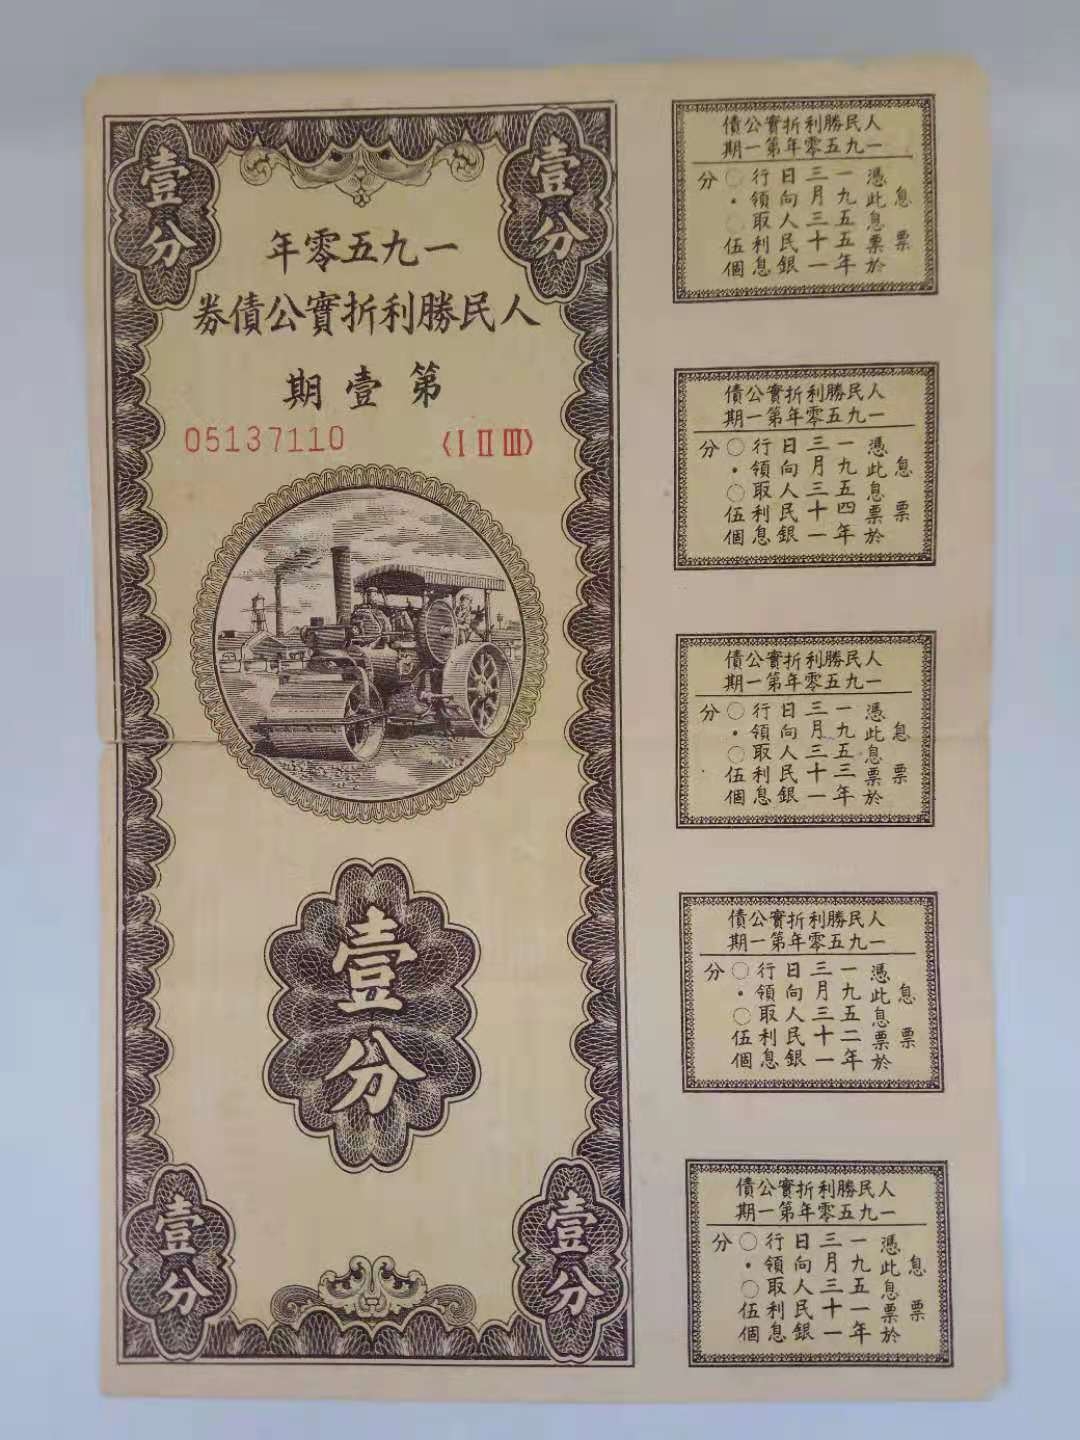 壹分
壹分
一九五零年
人民勝利折實公債券
第壹期
05137110
〈I II III〉
壹分
壹分
壹分
人民勝利折實公債
一九五零年第一期
息票
憑此息票於
一九五五年
三月三十一
日向人民銀
行領取利息
〇·〇伍個
分
人民勝利折實公債
一九五零年第一期
息票
憑此息票於
一九五四年
三月三十一
日向人民銀
行領取利息
〇·〇伍個
分
人民勝利折實公債
一九五零年第一期
息票
憑此息票於
一九五三年
三月三十一
日向人民銀
行領取利息
〇·〇伍個
分
人民勝利折實公債
一九五零年第一期
息票
憑此息票於
一九五二年
三月三十一
日向人民銀
行領取利息
〇·〇伍個
分
人民勝利折實公債
一九五零年第一期
息票
憑此息票於
一九五一年
三月三十一
日向人民銀
行領取利息
〇·〇伍個
分